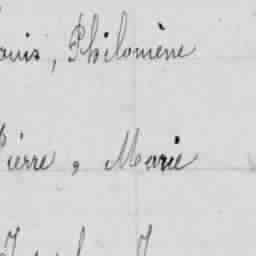 ouis, Philomène
Pierre, Marie